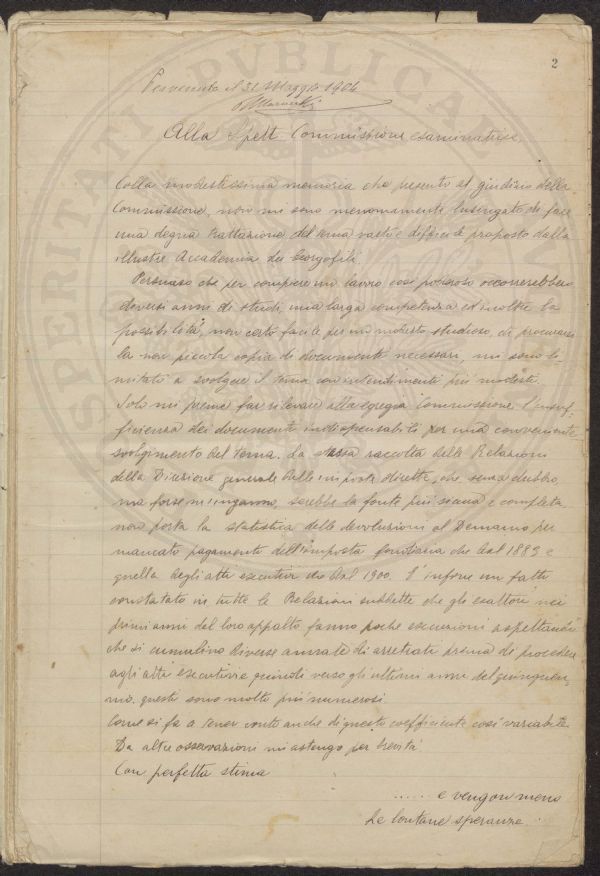 2
Pervenuta il 31 Maggio 1904
Alla Spett. Commissione esaminatrice.
Colla modestissima memoria che presento al giudizio della
Commissione, non mi sono menomamente lusingato di fare
una degna trattazione del tema vasto e difficile proposto dalla
illustre Accademia dei Georgofili.
Persuaso che per compiere un lavoro così poderoso occorrerebbero
diversi anni di studi, una larga competenza ed inoltre la
possibilità, non certo facile per un modesto studioso, di procurarsi
la non piccola copia di documenti necessari, mi sono li-
mitato a svolgere il tema con intendimenti più modesti.
Solo mi preme far rilevare alla egregia Commissione l'insuf-
ficienza dei documenti indispensabili per una conveniente
svolgimento del tema. La stessa raccolta delle Relazioni
della Direzione generale delle imposte dirette, che senza dubbio,
ma forse m'inganno, sarebbe la fonte più sicura e completa,
non porta la statistica delle devoluzioni al Demanio per
mancato pagamento dell'imposta fondiaria che dal 1889 e
quella degli atti esecutivi che dal 1900. È infine un fatto
constatato in tutte le Relazioni suddette che gli esattori nei
primi anni del loro appalto fanno poche escussioni aspettando
che si cumulino diverse annate di arretrati prima di procedere
agli atti esecutivi e quindi verso gli ultimi anni del quinquen-
nio questi sono molto più numerosi.
Come si fa a tener conto anche di questo coefficiente così variabile.
Da altre osservazioni mi astengo per brevità.
Con perfetta stima
...... e vengon meno
Le lontane speranze...
SPERITATI PUBLICAE